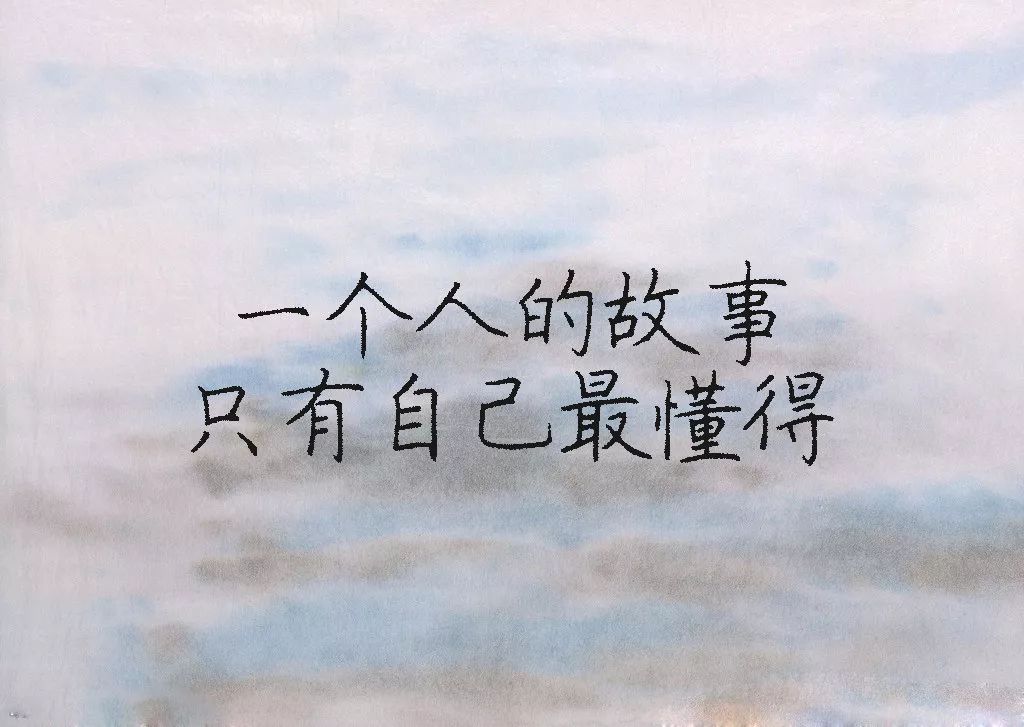 一个人的故事
只有自己最懂得